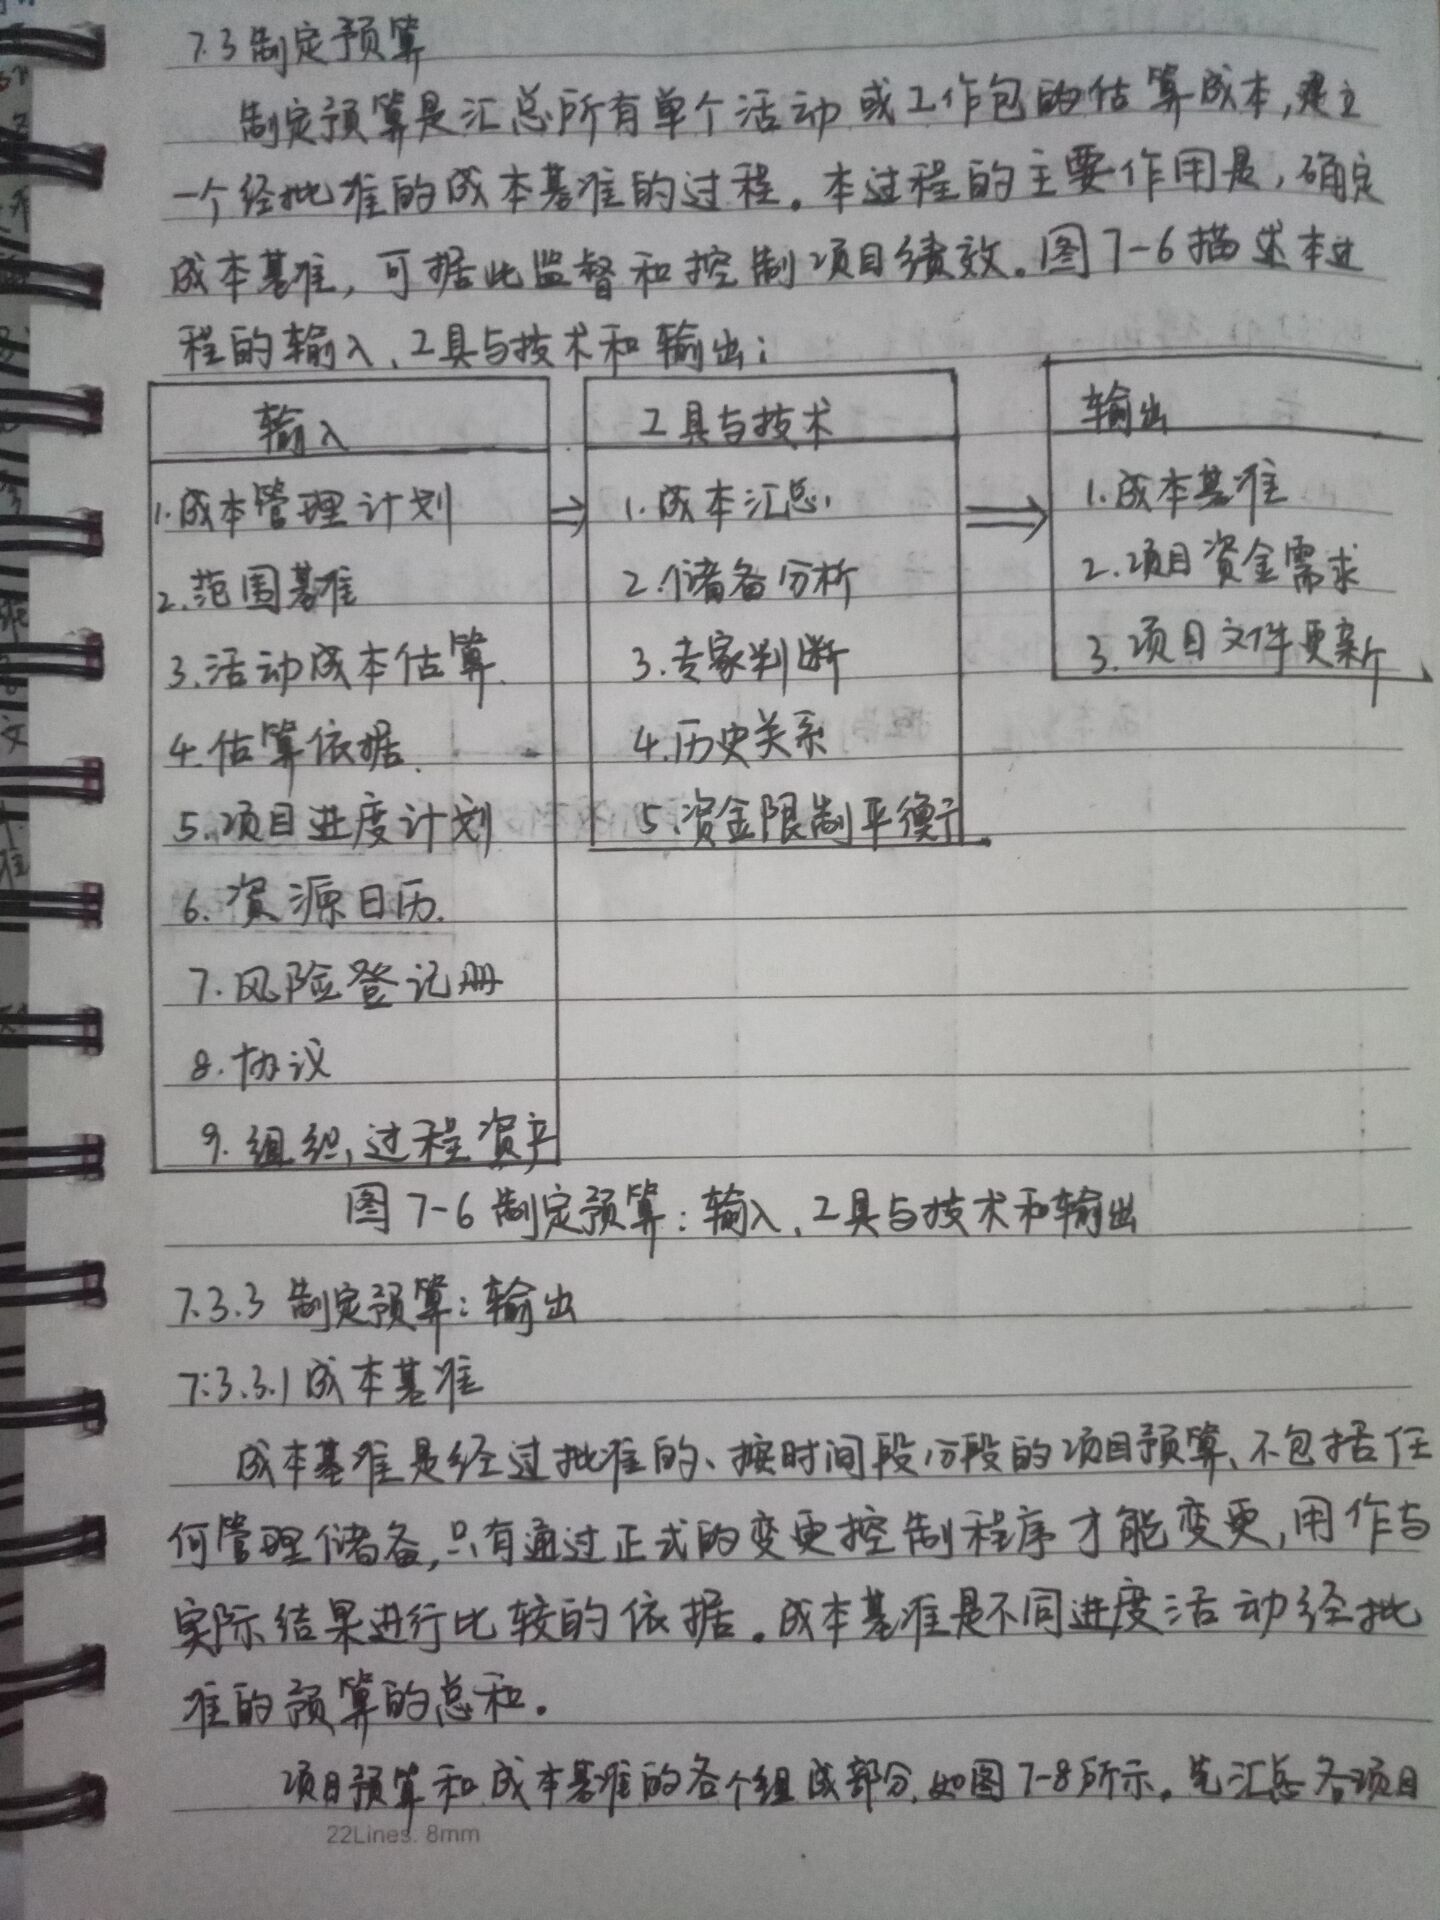 7.3 制定预算
制定预算是汇总所有单个活动或工作包的估算成本,建立
一个经批准的成本基准的过程。本过程的主要作用是,确定
成本基准,可据此监督和控制项目绩效。图7-6描述本过
程的输入、工具与技术和输出:
输入
1.成本管理计划
2.范围基准
3.活动成本估算
4.估算依据
5.项目进度计划
6.资源日历
7.风险登记册
8.协议
9.组织过程资产
工具与技术
1.成本汇总
2.储备分析
3.专家判断
4.历史关系
5.资金限制平衡
输出
1.成本基准
2.项目资金需求
3.项目文件更新
图7-6 制定预算:输入、工具与技术和输出
7.3.3 制定预算:输出
7.3.3.1 成本基准
成本基准是经过批准的、按时间段分段的项目预算、不包括任
何管理储备,只有通过正式的变更控制程序才能变更,用作与
实际结果进行比较的依据。成本基准是不同进度活动经批
准的预算的总和。
项目预算和成本基准的各个组成部分,如图7-8所示。先汇总各项目
22Lines. 8mm